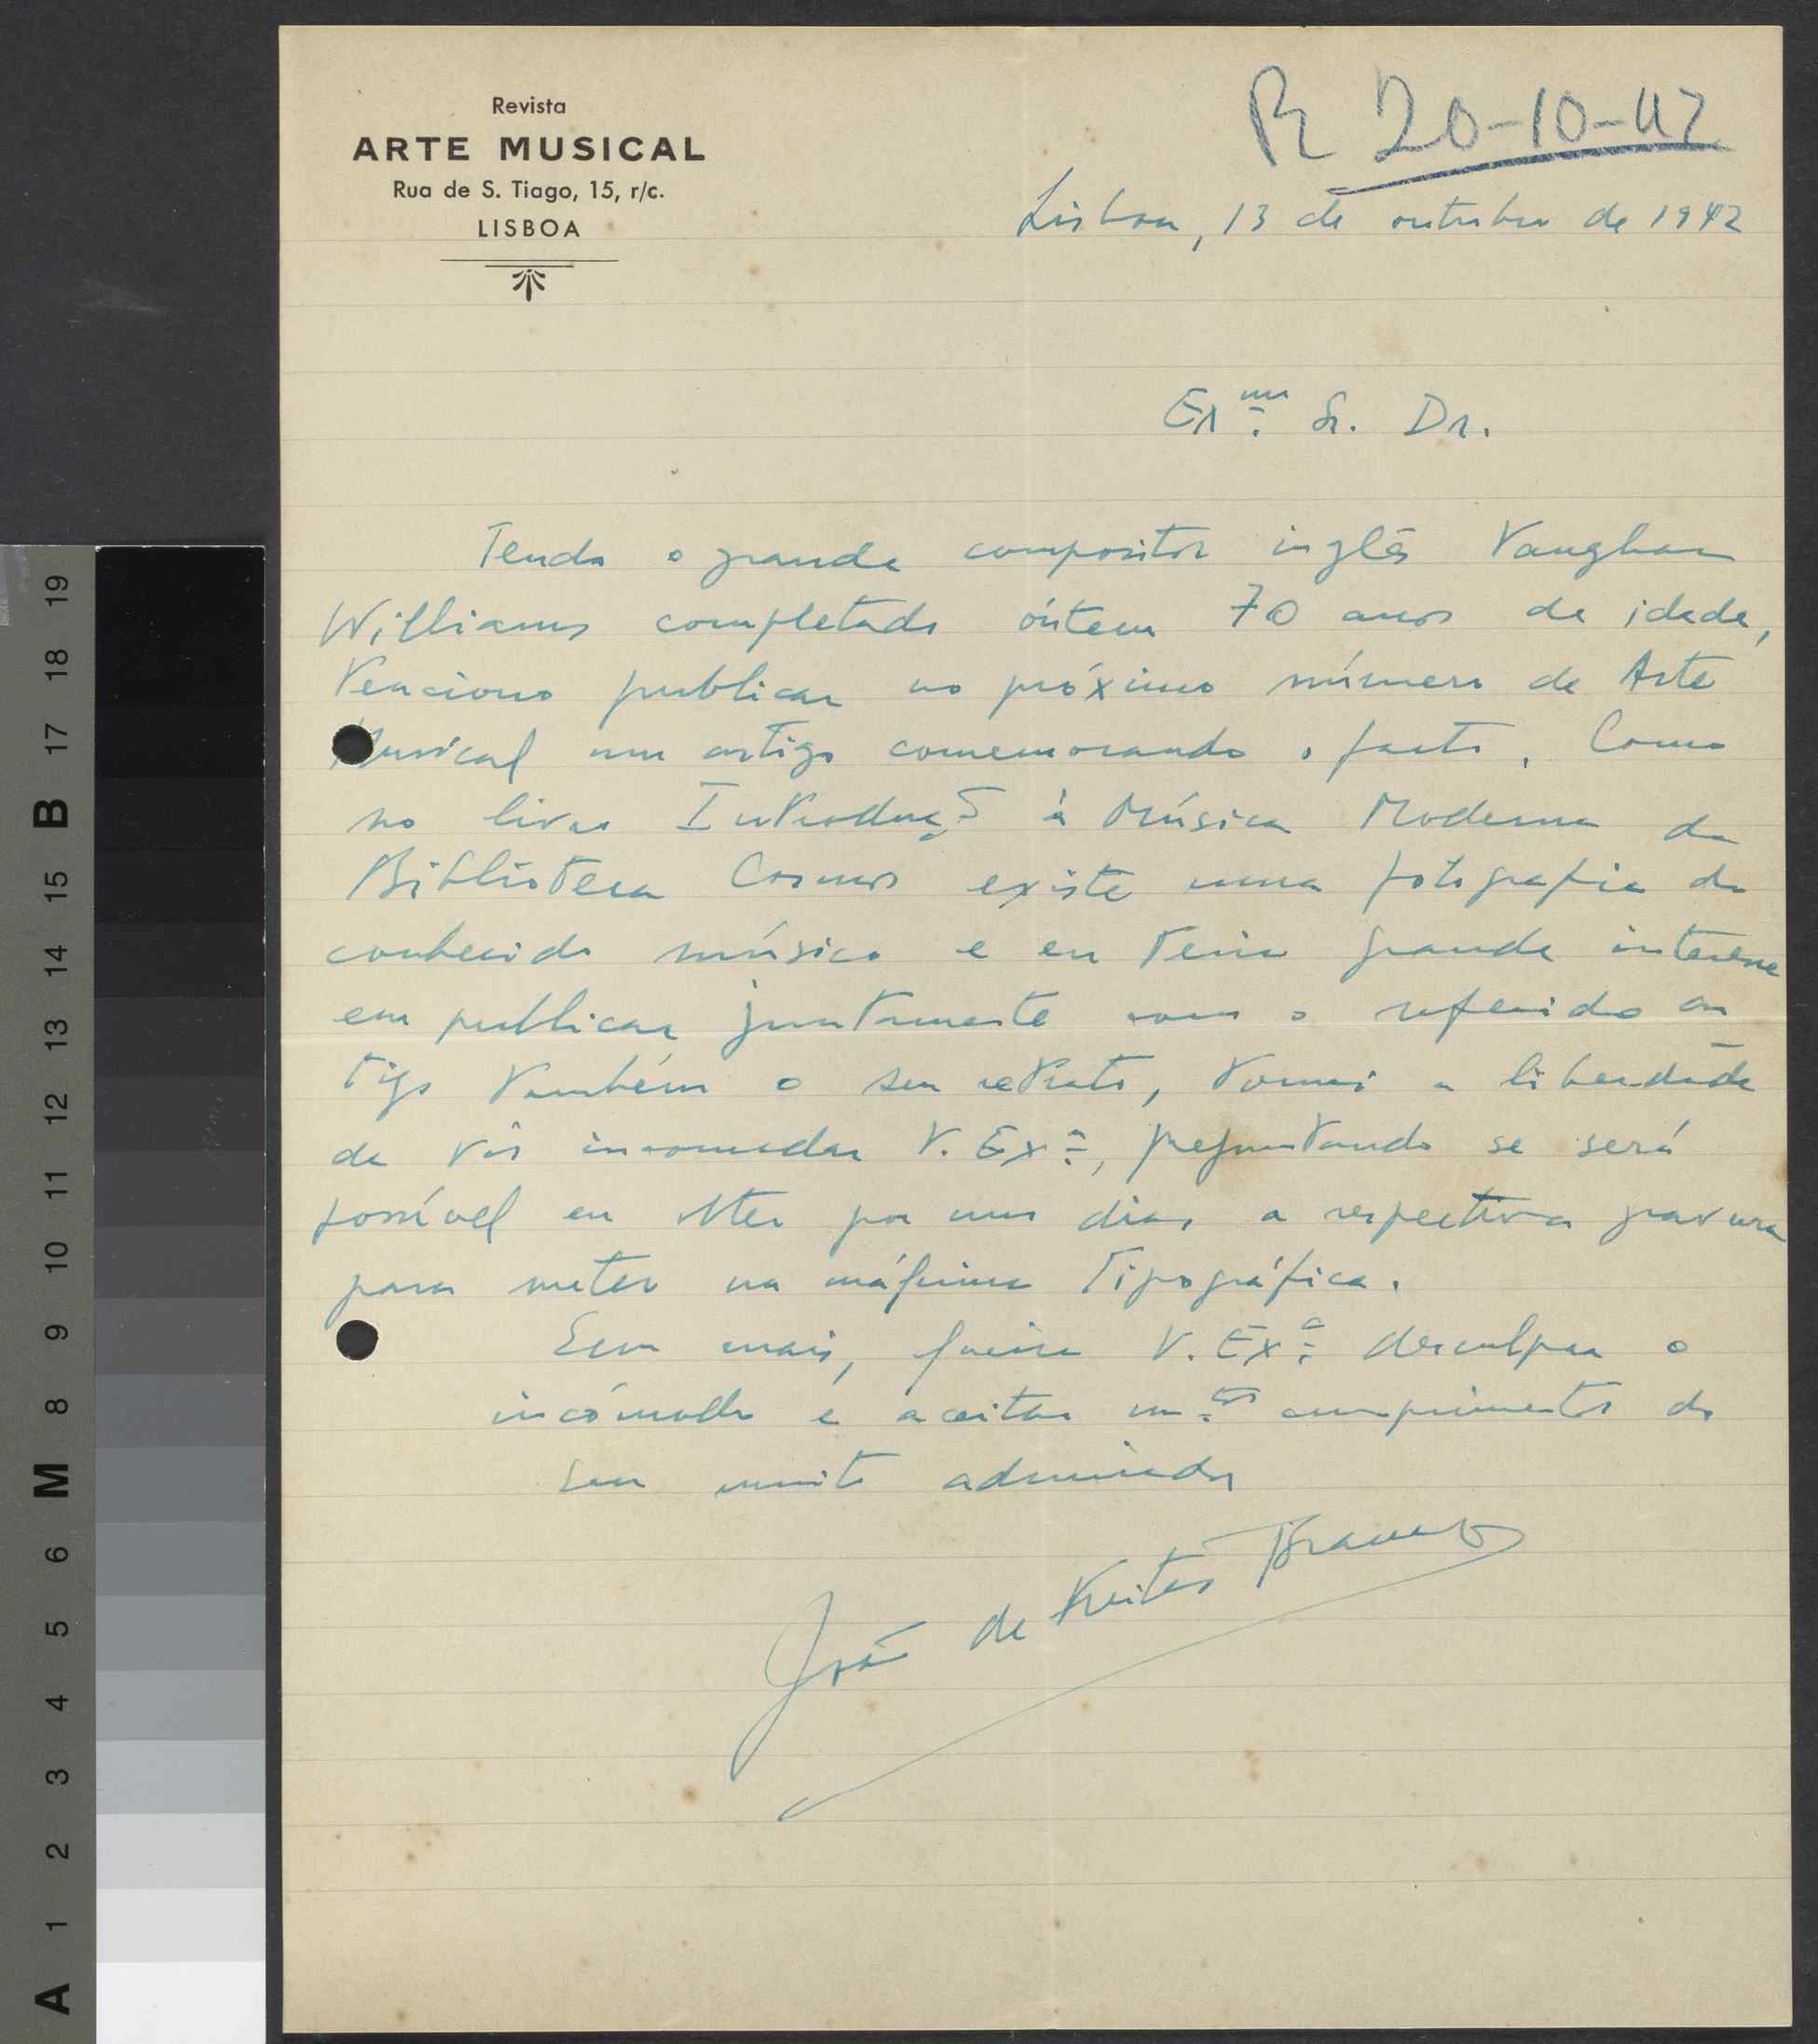 Revista
ARTE MUSICAL
Rua de S. Tiago, 15, r/c.
LISBOA
R 20-10-42
Lisboa, 13 de outubro de 1942
Exmo. Sr. Dr.
Tendo o grande compositor inglês Vaughan
Williams completado ôntem 70 anos de idade,
tenciono publicar no próximo número de Arte
Musical um artigo comemorando o facto. Como
no livro Introdução à Música Moderna da
Biblioteca Cosmos existe uma fotografia do
conhecido músico e eu teria grande interesse
em publicar juntamente com o referido ar
tigo também o seu retrato, tomei a liberdade
de vir incomodar V. Exa., preguntando se será
possível eu obter por uns dias a respectiva gravura
para meter na máquina tipográfica.
Sem mais, queira V. Exa. desculpar o
incómodo e aceitar mtos. cumprimentos do
seu muito admirador
João de Freitas Branco
19
18
17
B
15
14
13
12
11
10
9
8
M
6
5
4
3
2
1
A